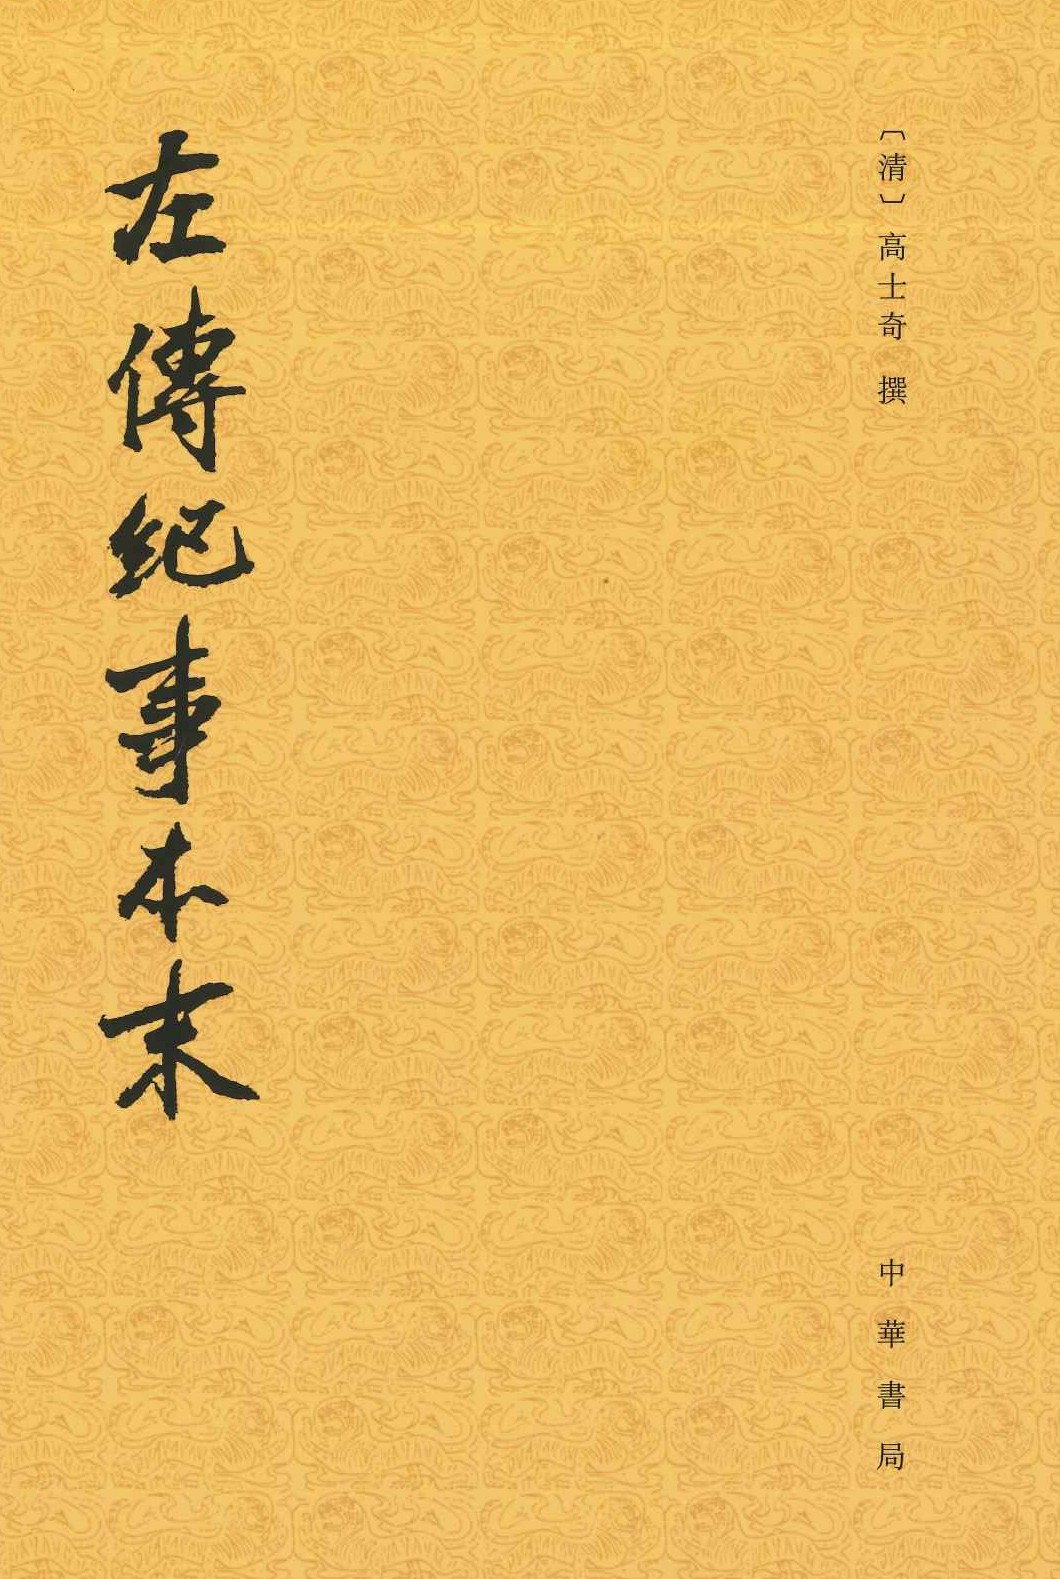 〔清〕高士奇 撰
中華書局
左傳紀事本末